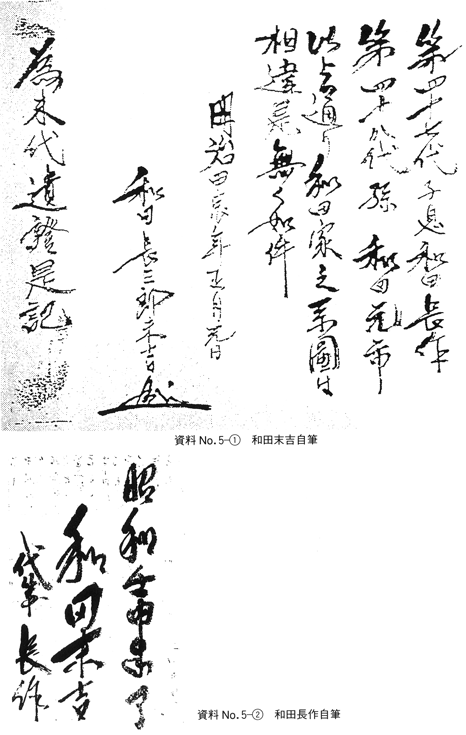 第四十七代 子息 和田長作
第四十八代 孫 和田
通り 和田家之系圖
相違 無く如件
明治 年 月元日
和田長三郎末吉
為末代遺證是記
資料No.5-① 和田末吉自筆
昭和壬申
和田末吉
代筆 長作
資料No.5-② 和田長作自筆